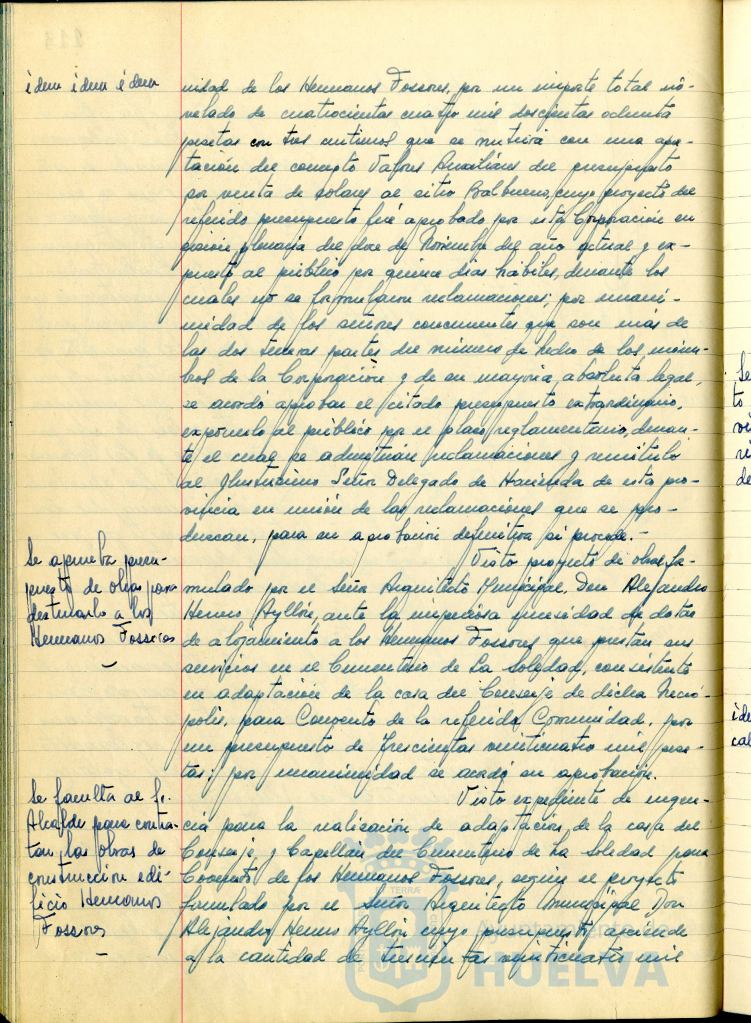 idem idem idem
nidad de los Hermanos Fossores, por un importe total ni-
velado de cuatrocientas cuatro mil doscientas ochenta
pesetas con tres céntimos que se nutrirá con una apor-
tación del concepto Valores Auxiliares del presupuesto
por venta de solares al sitio Balbueno, cuyo proyecto del
referido presupuesto fué aprobado por esta Corporación en
sesión plenaria del doce de Noviembre del año actual y ex-
puesto al público por quince días hábiles, durante los
cuales no se formularon reclamaciones; por unani-
midad de los señores concurrentes que son más de
las dos terceras partes del número de hecho de los miem-
bros de la Corporación y de su mayoría absoluta legal,
se acordó aprobar el citado presupuesto extraordinario,
exponerlo al público por el plazo reglamentario, duran-
te el cual se admitirán reclamaciones y remitirlo
al Ilustrísimo Señor Delegado de Hacienda de esta pro-
vincia en unión de las reclamaciones que se pro-
duzcan, para su aprobación definitiva si procede.-
Se aprueba presu-
puesto de obras para
destinarlo a los
Hermanos Fossores
-
Visto proyecto de obras for-
mulado por el Señor Arquitecto Municipal, Don Alejandro
Herrero Ayllón, ante la imperiosa necesidad de dotar
de alojamiento a los Hermanos Fossores que prestan sus
servicios en el Cementerio de La Soledad, consistente
en adaptación de la casa del Conserje de dicha Necró-
polis, para Convento de la referida Comunidad, por
un presupuesto de trescientas veinticuatro mil pese-
tas; por unanimidad se acordó su aprobación.
Se faculta al Sr.
Alcalde para contra-
tar las obras de
construcción edi-
ficio Hermanos
Fossores
-
Visto expediente de urgen-
cia para la realización de adaptación de la casa del
Conserje y Capellán del Cementerio de La Soledad para
Convento de los Hermanos Fossores, según el proyecto
formulado por el Señor Arquitecto Municipal Don
Alejandro Herrero Ayllón cuyo presupuesto asciende
a la cantidad de trescientas veinticuatro mil
Ayuntamiento
HUELVA